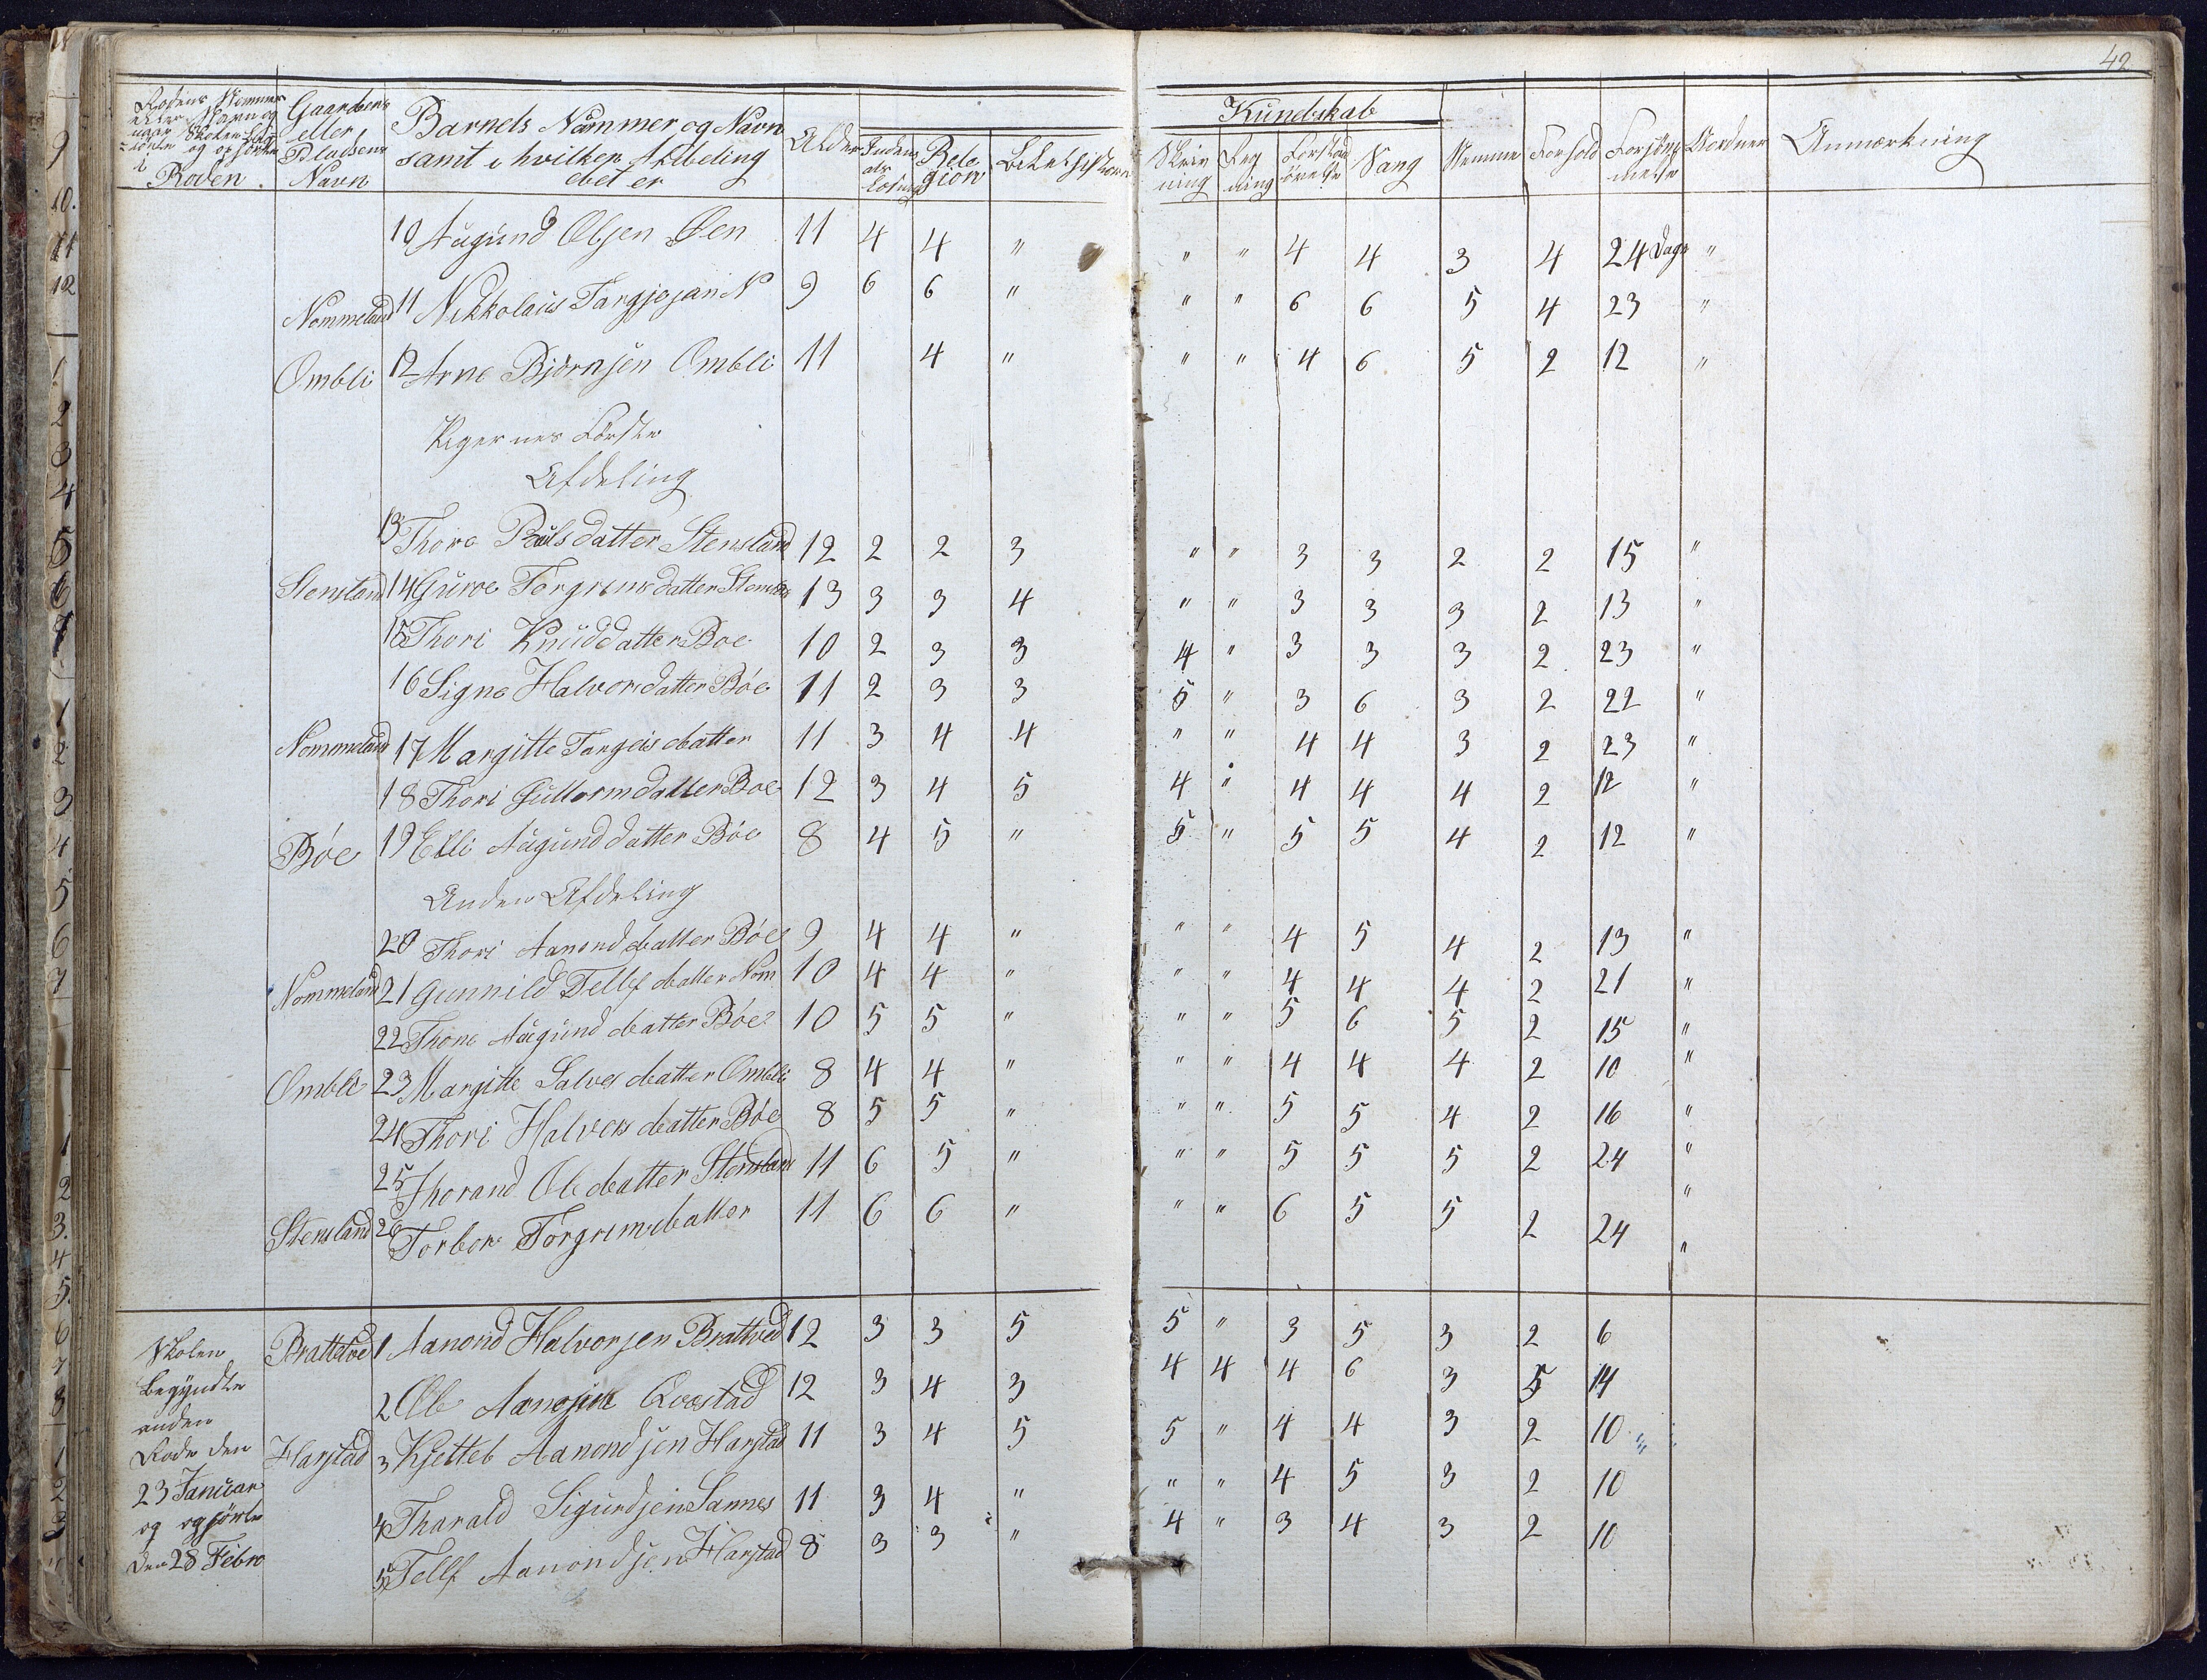 42
Rodens Nommer
eller Navn og
naar Skolen
og
i
Roden.
Gaardens
eller
Pladsens
Navn
Barnets Nummer og Navn
samt i hvilken Afdeling
det er
Alder
Religion
Kundskab
Skrivning
Regning
Sang
Nemme
Forhold
Forsømmelse
Anmærkning
10 Augund Olsen Øen 11 4 4 " " " 4 4 3 4 24 Dage "
Nommeland 11 Nikkolaus Targjejsan N 9 6 6 " " " 6 6 5 4 23 "
Ombli 12 Arne Bjørnsen Ombli 11 4 " " " 4 6 5 2 12 "
Pigernes Første
Afdeling
13 Thore Pauls datter Stensland 12 2 2 3 " " 3 3 2 2 15 "
Stensland 14 Guroe Torgrims datter Stensland 13 3 3 4 " " 3 3 3 2 13 "
15 Thori Knud datter Boe 10 2 3 3 4 " 3 3 3 2 23 "
16 Signe Halvors datter Bóe 11 2 3 3 5 " 3 6 3 2 22 "
Nommeland 17 Margitte Torgeis datter 11 3 4 4 " " 4 4 3 2 23 "
18 Thori Guttorm datter Boe 12 3 4 5 4 " 4 4 4 2 12 "
Bóe 19 Elli Augund datter Bóe 8 4 5 " 5 " 5 5 4 2 12 "
Anden Afdeling
20 Thori Aanond datter Bóe 9 4 4 " " " 4 5 4 2 13 "
Nommeland 21 Gunnild Tellf datter Nom 10 4 4 " " " 4 4 4 2 21 "
22 Thone Augund datter Bóe 10 5 5 " " " 5 6 5 2 15 "
Ombli 23 Margitte Salves datter Ombli 8 4 4 " " " 4 4 4 2 10 "
24 Thori Halvers datter Bóe 8 5 5 " " " 5 5 4 2 16 "
25 Thorand Ole datter Stensland 11 6 5 " " " 5 5 5 2 24 "
Stensland 26 Torbor Torgrims datter 11 6 6 " " " 6 5 5 2 24 "
Skolen
begyndte
anden
Rode den
23 Januar
og ophörte
den 28 Febr
Brattved 1 Aanond Halvorsen Brattved 12 3 3 5 5 " 3 5 3 2 6
2 Ole Qvestad 12 3 4 3 4 4 4 6 3 5 14
Harstad 3 Kjetteb Aanondsen Harstad 11 3 4 5 5 " 4 4 3 2 10
4 Tharald Sigurdsen Sannes 11 3 4 " " " 4 5 3 2 10
5 Tellf Aanondsen Harstad 8 3 3 " 4 " 3 4 3 2 10